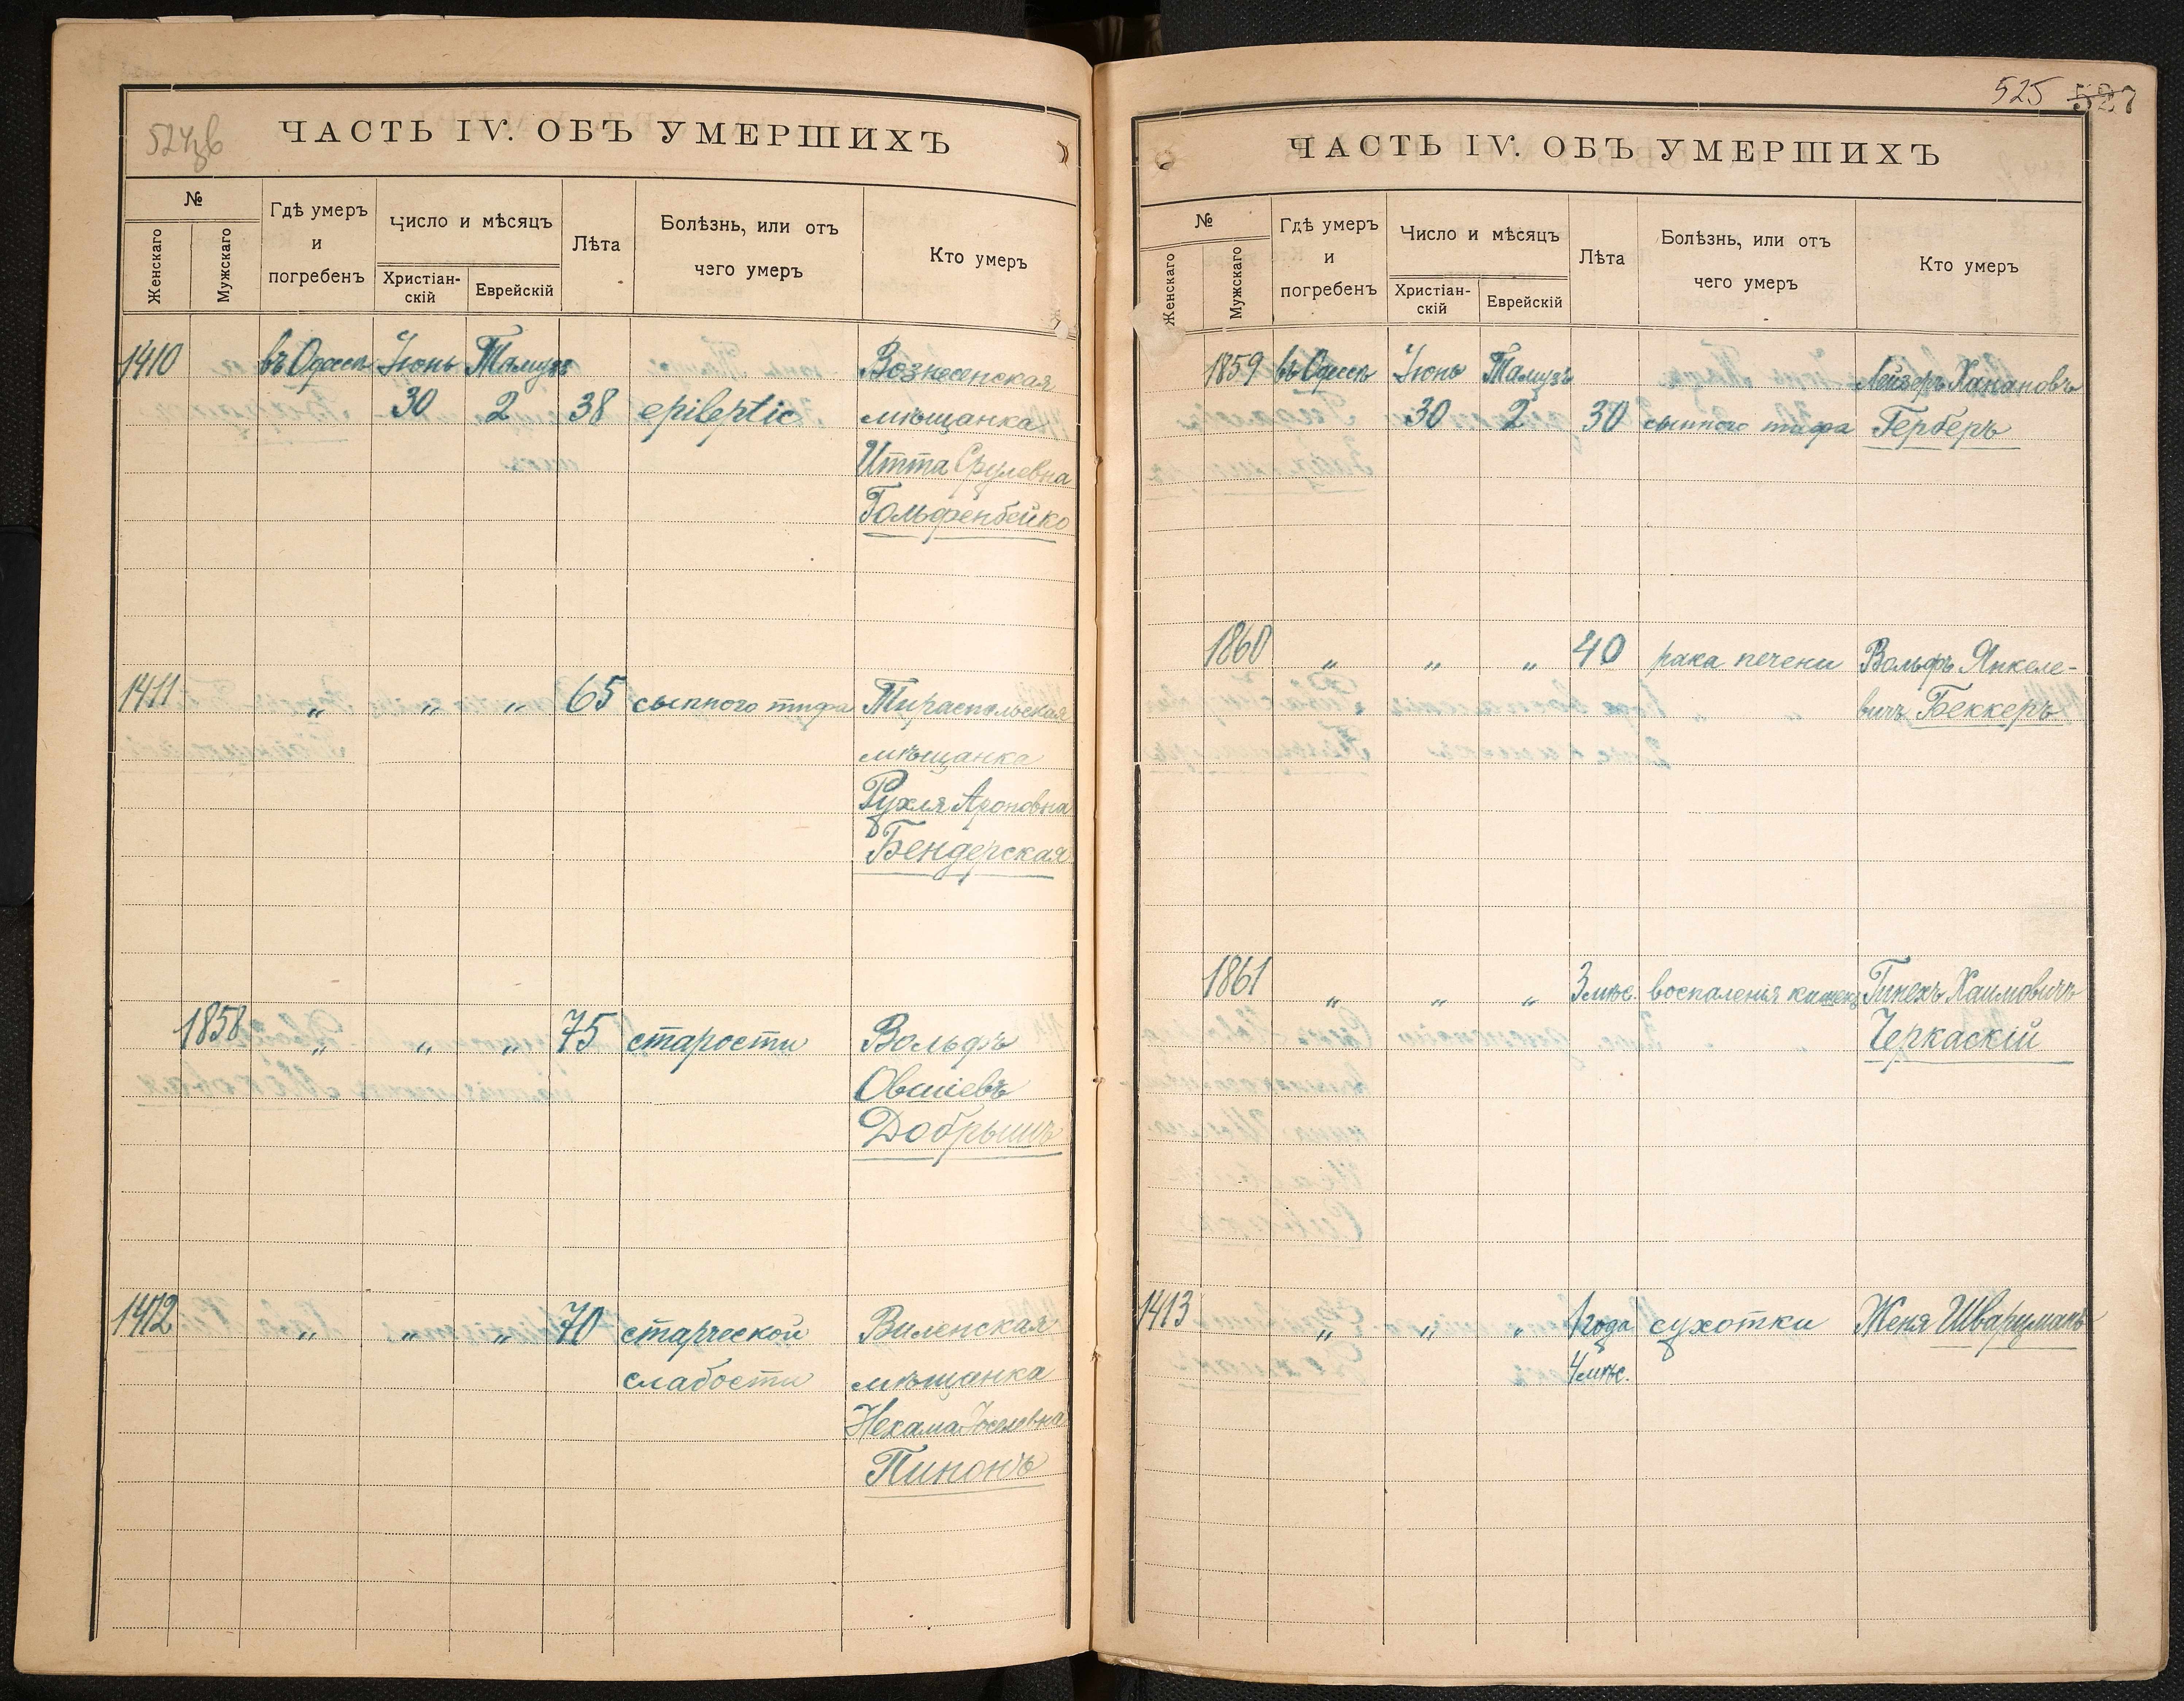 524 об
ЧАСТЬ IV. ОБЪ УМЕРШИХЪ
№
Женскаго
Мужскаго
Гдѣ умеръ
и
погребенъ
Число и мѣсяцъ
Христіан-
скій
Еврейскій
Лѣта
Болѣзнь, или отъ
чего умеръ
Кто умеръ
1410 въ Одессѣ Іюнь Тамузъ Вознесенская
30 2 38 epileptic мѣщанка
Итта Срулевна
Гольфенбейко
1411 „ „ „ 65 сыпного тифа Тираспольская
мѣщанка
Рухля Ароновна
Бендерская
1858 „ „ „ 75 старости Вольфъ
Овшіевъ
Добрышъ
1412 „ „ „ 70 старческой Виленская
слабости мѣщанка
Нехама Іоселевна
Пинонъ
525 527
ЧАСТЬ IV. ОБЪ УМЕРШИХЪ
№
Женскаго
Мужскаго
Гдѣ умеръ
и
погребенъ
Число и мѣсяцъ
Христіан-
скій
Еврейскій
Лѣта
Болѣзнь, или отъ
чего умеръ
Кто умеръ
1859 въ Одессѣ Іюнь Тамузъ Лейзеръ Ханановъ
30 2 30 сыпного тифа Герберъ
1860 „ „ „ 40 рака печени Вольфъ Янкеле-
вичъ Беккеръ
1861 „ „ „ 3 мѣс. воспаленія кишекъ Пинехъ Хаимовичъ
Черкаскій
1413 „ „ „ 1 года сухотки Женя Шварцманъ
4 мѣс.